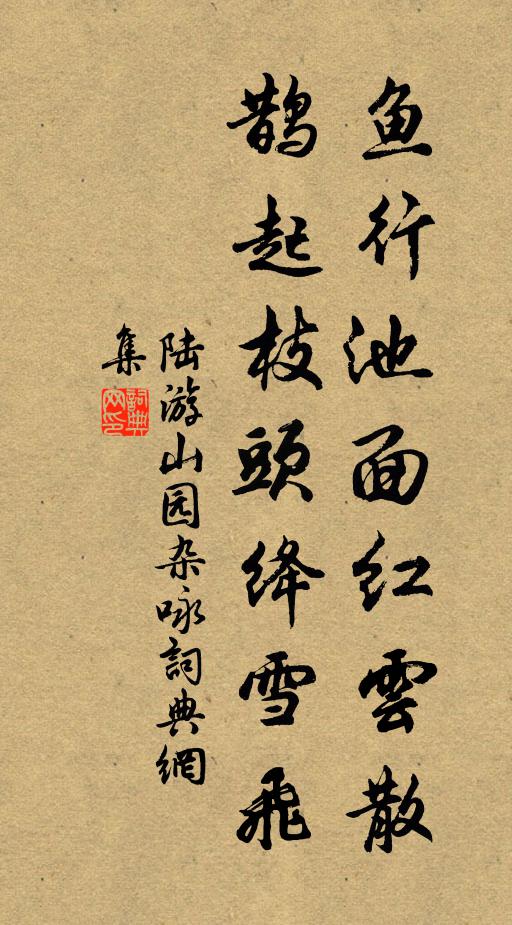 鱼行池面红雲散
鹊起枝頭绛雪飛
陆游山园杂咏詞典網
集
詞典网印